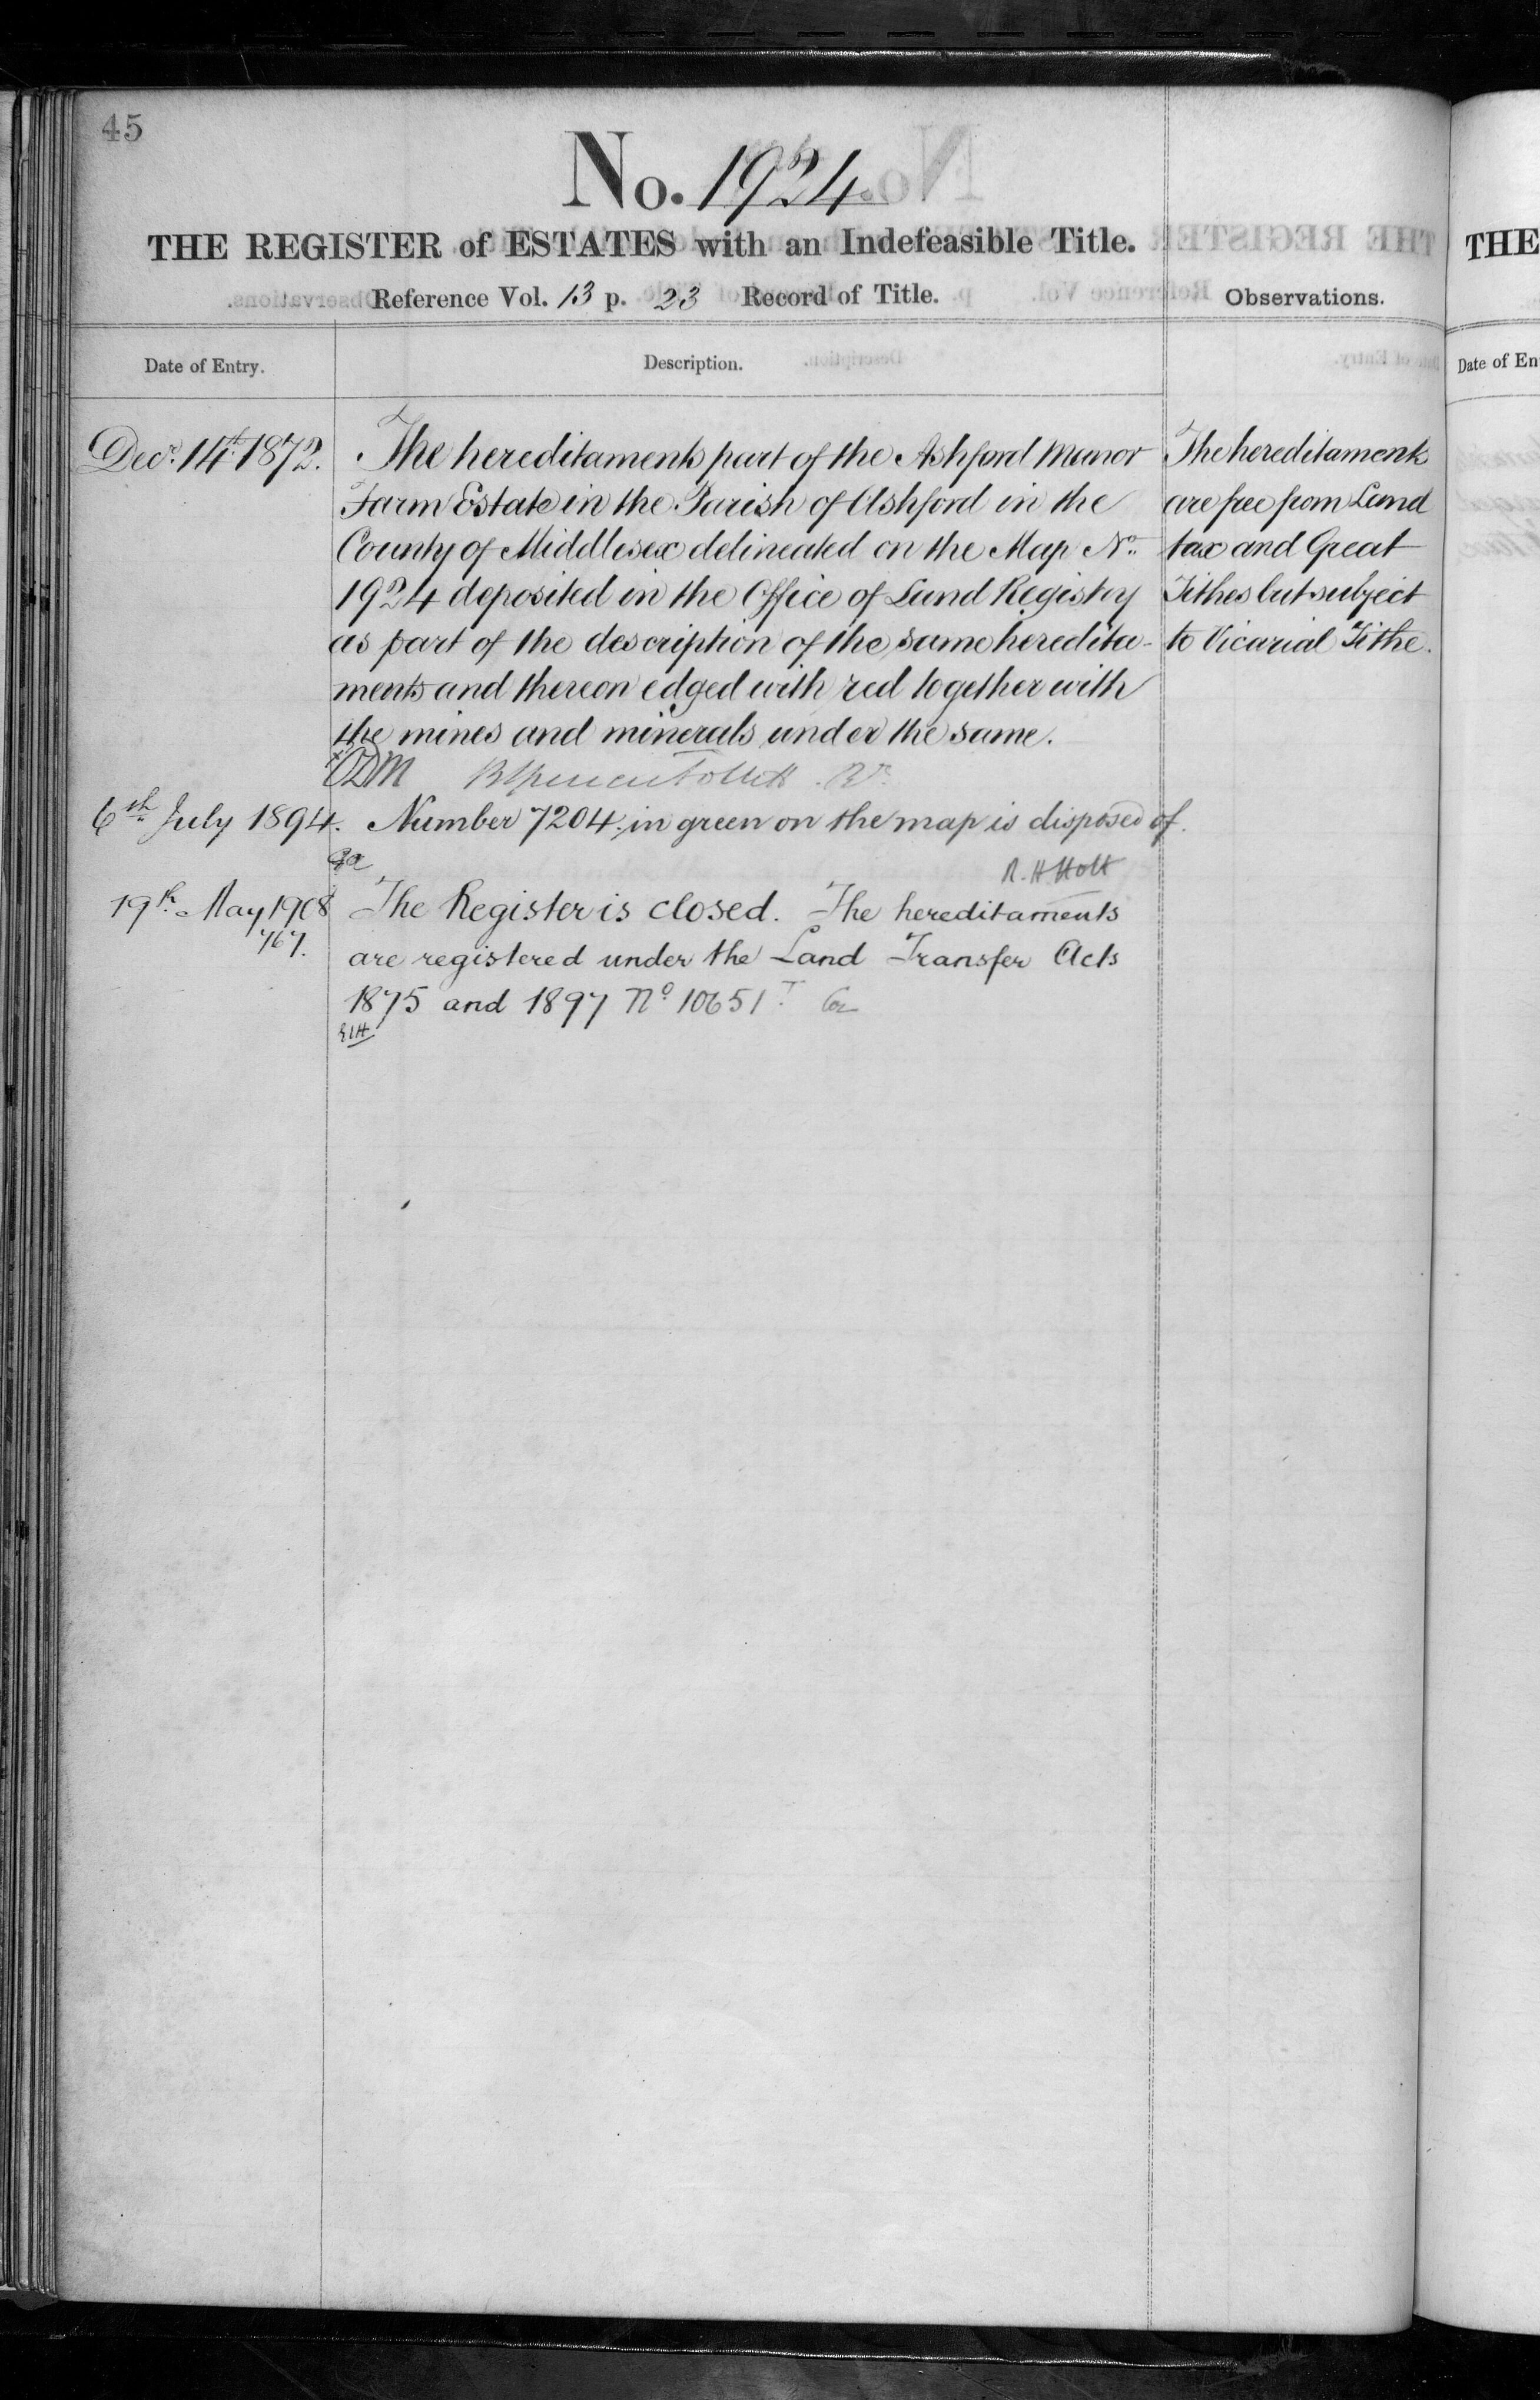 45
No. 1924
THE REGISTER of ESTATES with an Indefeasible Title.
Reference Vol. 13 p. 23 Record of Title.
Observations.
Date of Entry.
Description.
Decr. 14th 1872.
The hereditaments part of the Ashford Manor
Farm Estate in the Parish of Ashford in the
County of Middlesex delineated on the Map No.
1924 deposited in the Office of Land Registry
as part of the description of the same heredita-
ments and thereon edged with red together with
the mines and minerals under the same.
The hereditaments
are free from Land
tax and Great
Tithes but subject
to Vicarial Tithe.
6th July 1894.
Number 7204 in green on the map is disposed of.
R. H Holt
19th May 1908
767.
The Register is closed. The hereditaments
are registered under the Land Transfer Acts
1875 and 1897 No 10651
ELH
THE
Date of En